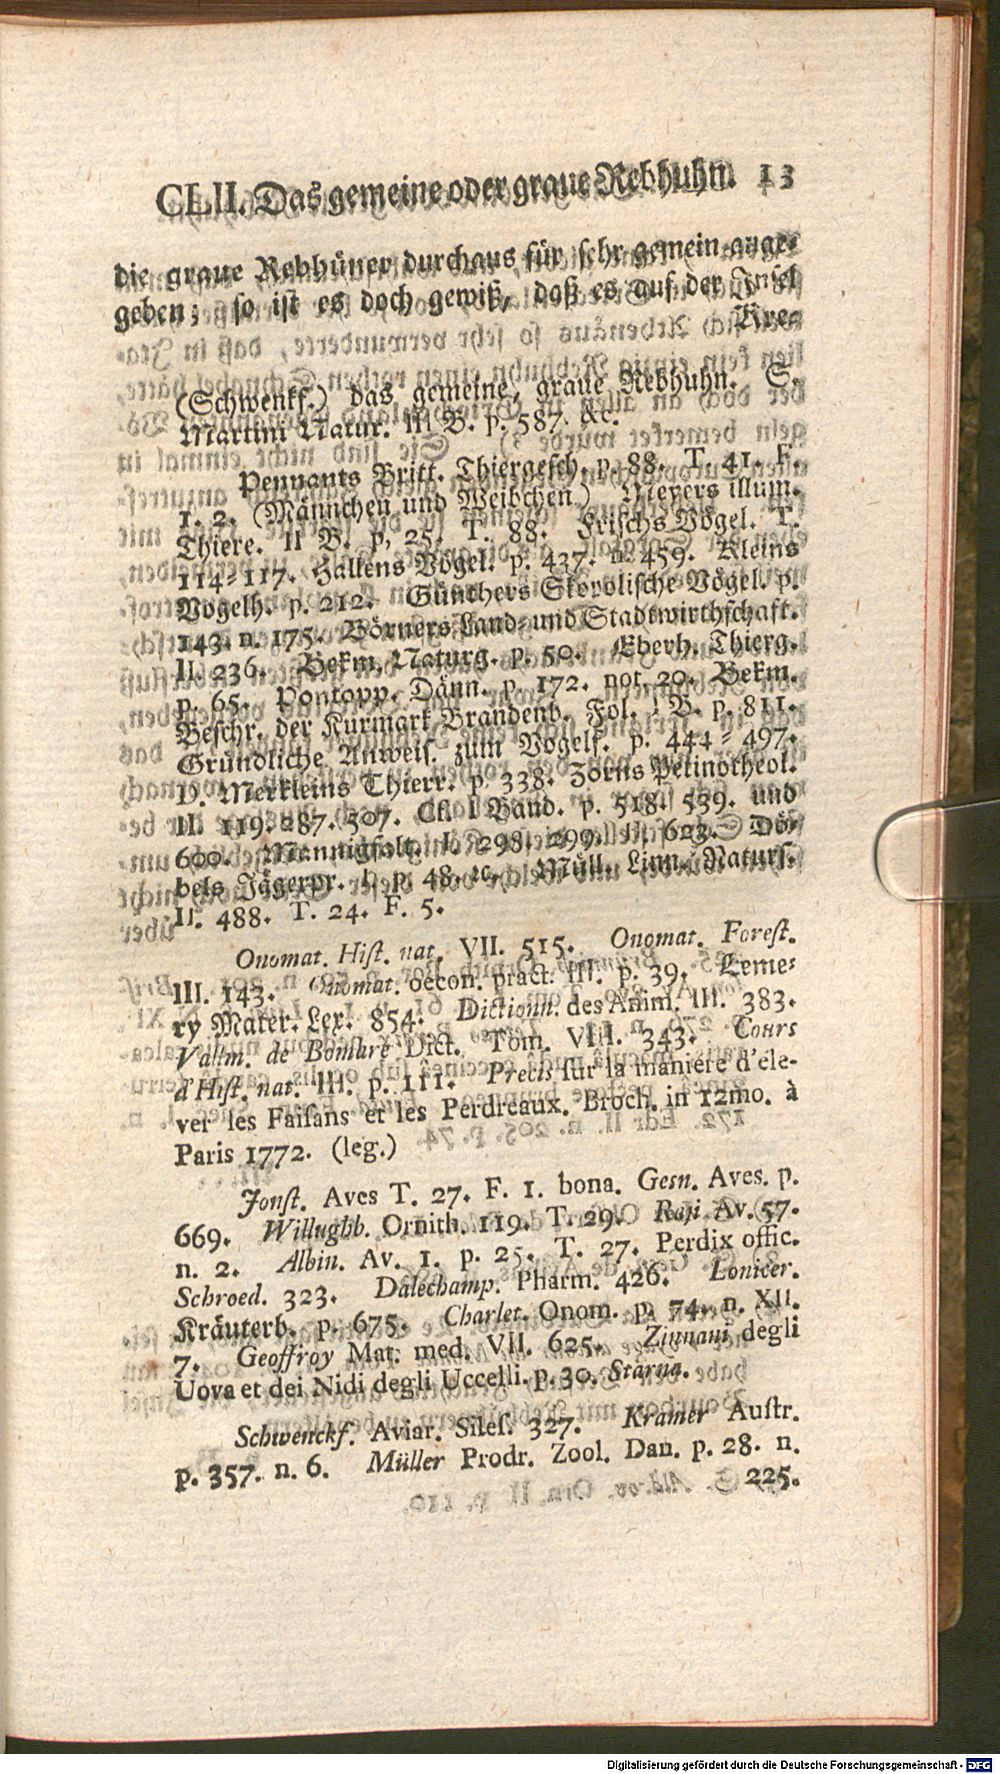 CLII. Das gemeine oder graue Rebhuhn. 13
die graue Rebhüner durchaus für sehr gemein ange-
geben; so ist es doch gewiß, daß es auf der Insel
Kre-
(Schwenkf.) das gemeine, graue Rebhuhn. S.
Martini Natur. III B. p. 587. &c.
Pennants Britt. Thiergesch. p. 88. T. 41. F.
1. 2. (Männchen und Weibchen.) Meyers illum.
Thiere. II B. p, 25. T. 88. Frischs Vögel. T.
114-117. Hallens Vögel. p. 437. n. 459. Kleins
Vogelh. p. 212. Günthers Skopolische Vögel. p.
143. n. 175. Börners Land- und Stadtwirthschaft.
II. 236. Bekm. Naturg. p. 50. Eberh. Thierg.
p. 65. Pontopp. Dänn. p. 172. not. 20. Bekm.
Beschr. der Kurmark Brandenb. Fol. I B. p. 811.
Gründliche Anweis. zum Vogelf. p. 444-497.
D. Merkleins Thierr. p. 338. Zorns Petinotheol.
II. 119. 287. 507. Ej. I Band. p. 518. 539. und
600. Mannigfalt. I. 298. 299. II. 623. Dö-
bels Jägerpr. I. p. 48. ꝛc. Müll. Linn. Naturs.
II. 488. T. 24. F. 5.
Onomat. Hist. nat. VII. 515. Onomat. Forest.
III. 143. Onomat. oecon. pract. III. p. 39. Leme-
ry Mater. Lex. 854. Dictionn. des Anim. III. 383.
Valm. de Bomare Dict. Tom. VIII. 343. Cours
d'Hist. nat. III. p. 111. Precis sur la maniere d'éle-
ver les Faisans et les Perdreaux. Broch. in 12mo. à
Paris 1772. (leg.)
Jonst. Aves T. 27. F. 1. bona. Gesn. Aves. p.
669. Willughb. Ornith. 119. T. 29. Raji Av. 57.
n. 2. Albin. Av. 1. p. 25. T. 27. Perdix offic.
Schroed. 323. Dalechamp. Pharm. 426. Lonicer.
Kräuterb. p. 675. Charlet. Onom. p. 74. n. XII.
7. Geoffroy Mat. med. VII. 625. Zinnani degli
Uova et dei Nidi degli Uccelli. p. 30. Starna.
Schwenckf. Aviar. Siles. 327. Kramer Austr.
p. 357. n. 6. Müller Prodr. Zool. Dan. p. 28. n.
225.
Digitalisierung gefördert durch die Deutsche Forschungsgemeinschaft - DFG